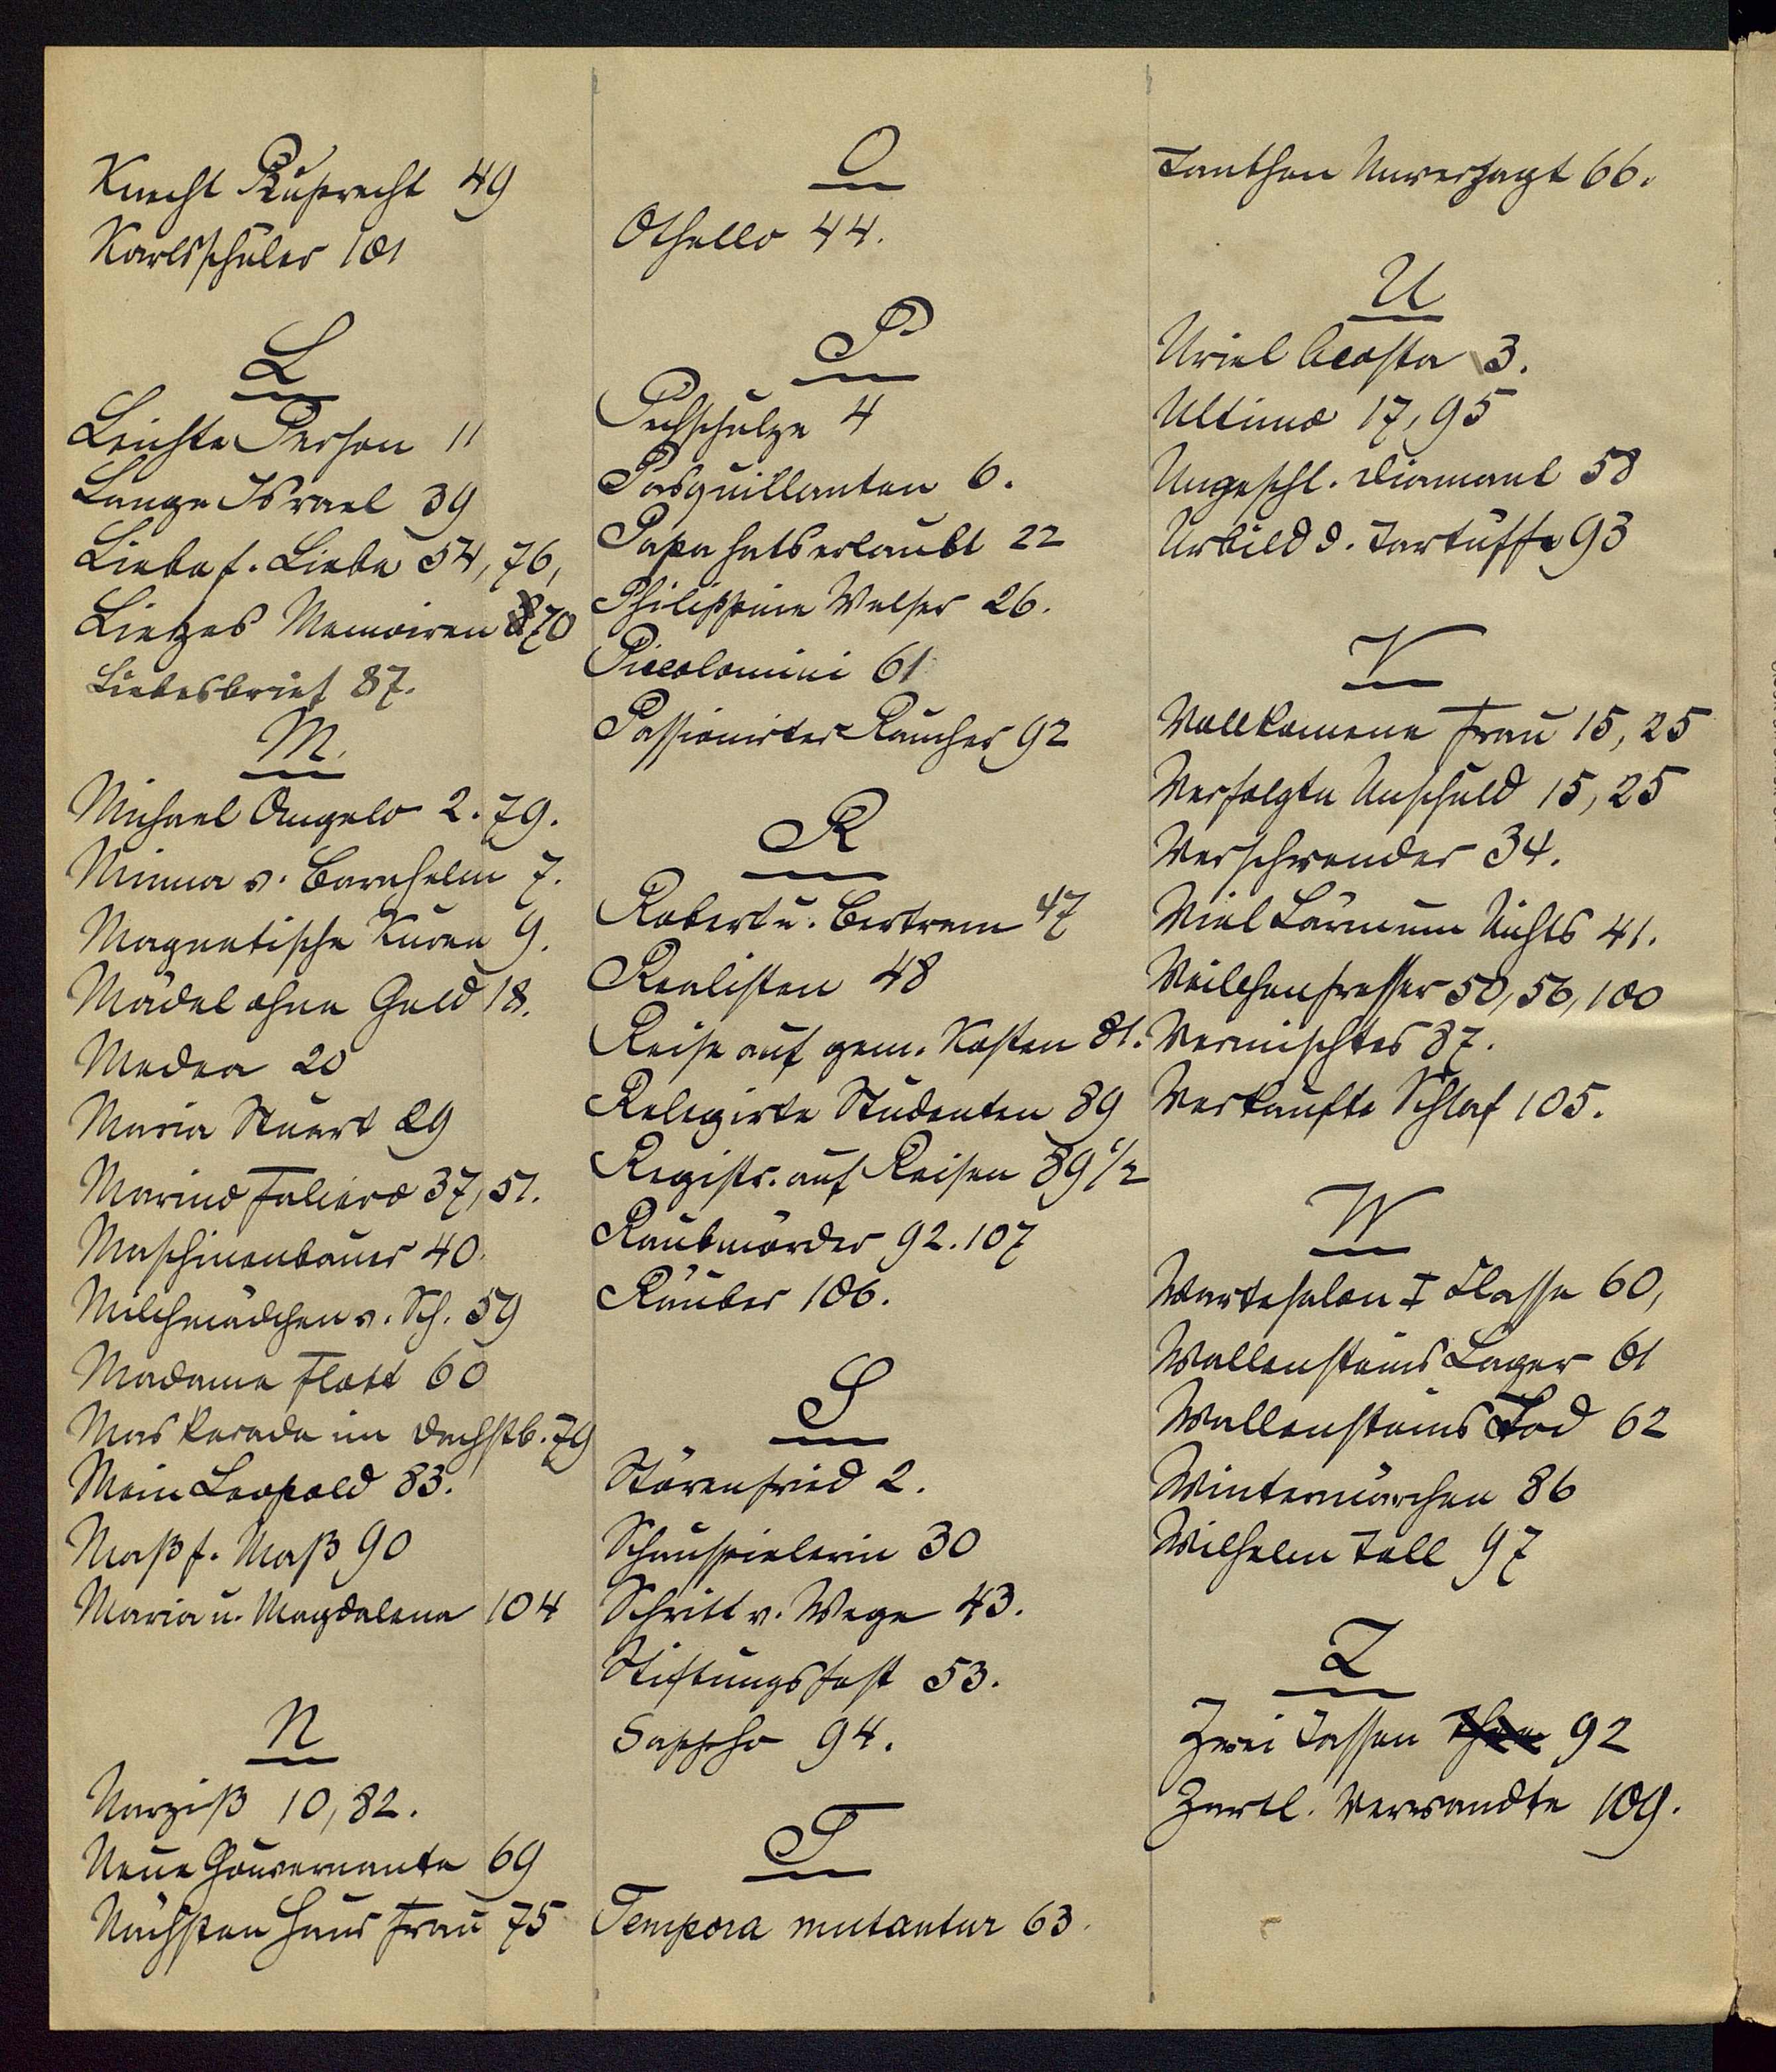 Knecht Ruprecht 49
Karlsschüler 101
L
Leichte Person 11
Lange Israel 39
Liebe f. Liebe 54, 76,
Memoiren 70
Liebesbrief 87.
M.
Michael Angelo 2. 79.
Minna v. Barnhelm 7.
Magnetische Kuren 9.
Mädel ohne Geld 18.
Medea 20
Maria Stuart 29
Marino Faliero 37, 51.
Maschinenbauer 40.
Milchmädchen v. Sch. 59
Madame Flott 60
Maskerade im Dachstb. 79
Mein Leopold 83.
Maß f. Maß 90
Maria u. Magdalena 104
N
Narziß 10, 82.
Neue Gouvernante 69
Nächsten Haus Frau 75
O
Othello 44.
P.
Pechschulze 4
Pasquillanten 6.
Papa hats erlaubt 22
Philippine Welser 26.
Piccolomini 61
Passionirter Raucher 92
R
Robert u. Bertram 47
Realisten 48
Reise auf gem. Kosten 81.
Relegirte Studenten 89
Registr. auf Reisen 89 1/2
Raubmörder 92. 107
Räuber 106.
S
Störenfried 2.
Schauspielerin 30
Schritt v. Wege 43.
Stiftungsfest 53.
Sappho 94.
T
Tempora mutantur 63.
Tantchen Unverzagt 66.
U
Uriel Acosta 3.
Ultimo 17, 95
Ungeschl. Diamant 58
Urbild d. Tartüffe 93
V
Vollkomene Frau 15, 25
Verfolgte Unschuld 15, 25
Verschwender 34.
Viel Lärm um Nichts 41.
Veilchenfresser 50, 56, 100
Vermischtes 87.
Verkaufte Schlaf 105.
W
Wartesalon I Classe 60,
Wallensteins Lager 61
Wallensteins Tod 62
Wintermärchen 86
Wilhelm Tell 97
Z
Zwei Tassen Thee 92
Zärtl. Verwandte 109.